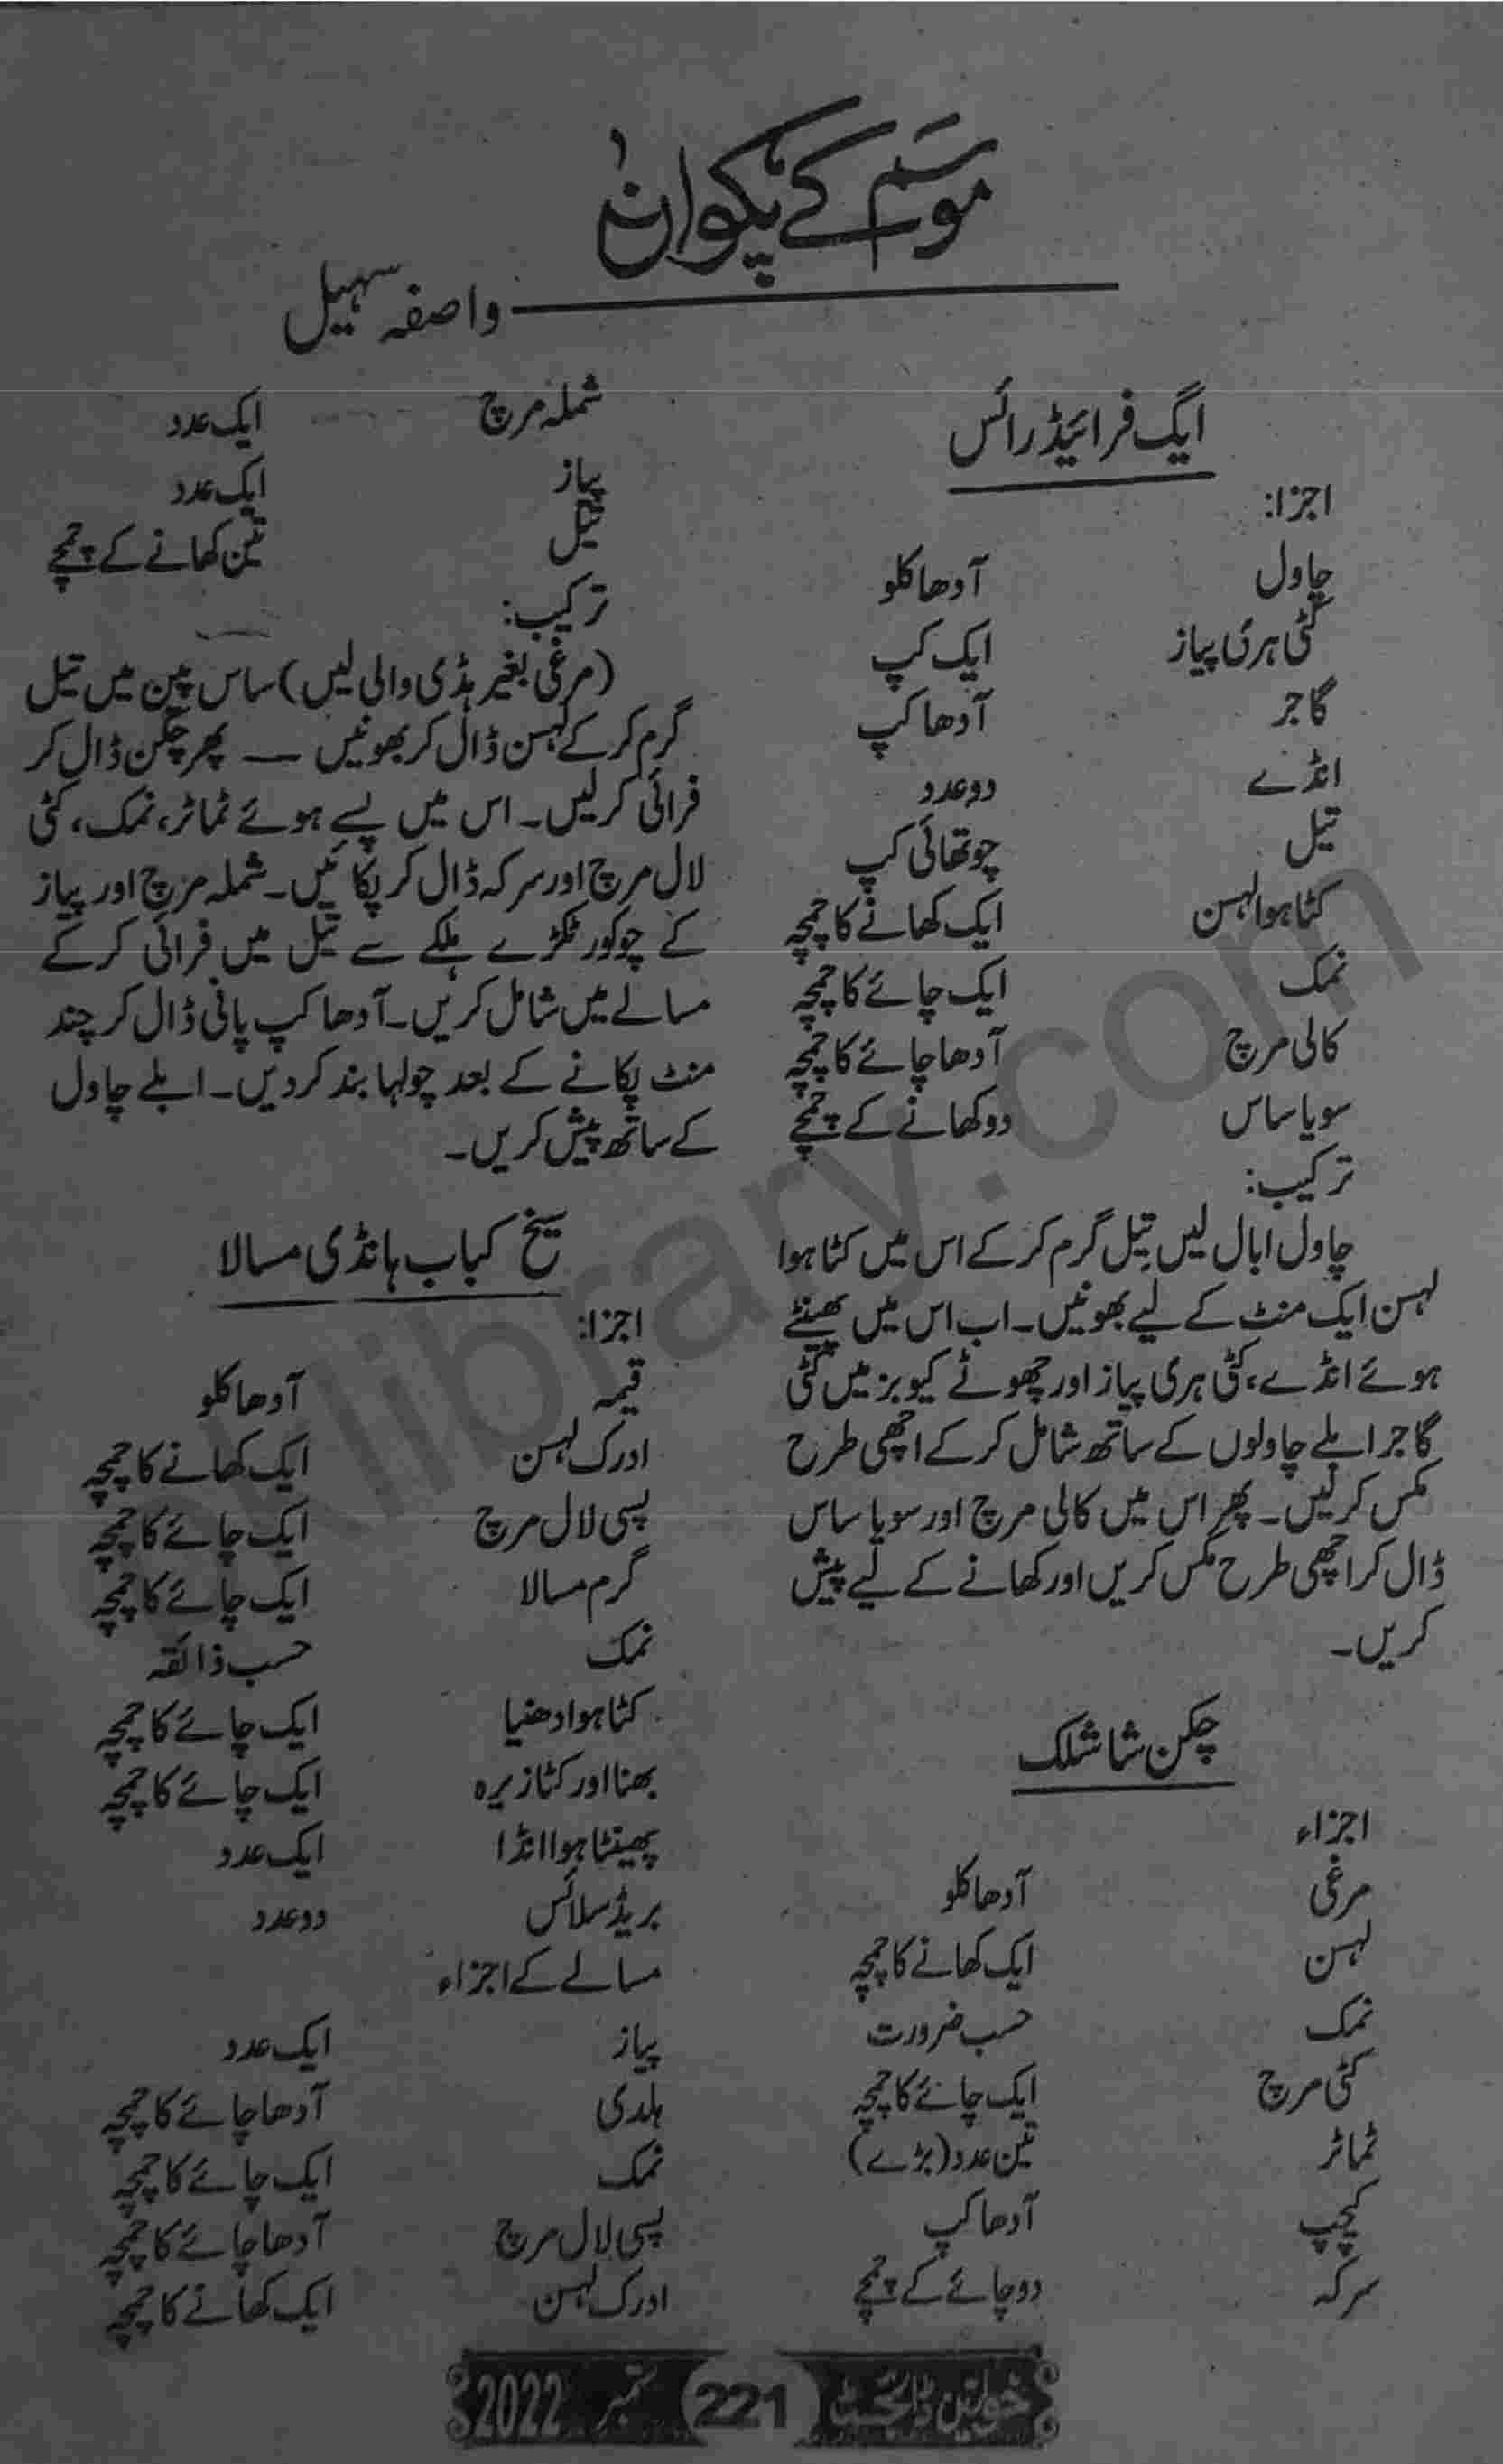 موسم کے پکوان
واصفہ سہیل
ایگ فرائیڈ رائس
اجزا:
چاول آدھا کلو
کٹی ہری پیاز ایک کپ
گاجر آدھا کپ
انڈے دو عدد
تیل چوتھائی کپ
کٹا ہوا لہسن ایک کھانے کا چمچہ
نمک ایک چائے کا چمچہ
کالی مرچ آدھا چائے کا چمچہ
سویا ساس دو کھانے کے چمچے
ترکیب:
چاول ابال لیں تیل گرم کر کے اس میں کٹا ہوا
لہسن ایک منٹ کے لیے بھونیں۔ اب اس میں پھینٹے
ہوئے انڈے، کٹی ہری پیاز اور چھوٹے کیوبز میں کٹی
گاجر ابلے چاولوں کے ساتھ شامل کر کے اچھی طرح
مکس کر لیں۔ پھر اس میں کالی مرچ اور سویا ساس
ڈال کر اچھی طرح مکس کریں اور کھانے کے لیے پیش
کریں۔
چکن شاشلک
اجزاء
مرغی آدھا کلو
لہسن ایک کھانے کا چمچہ
نمک حسب ضرورت
کٹی مرچ ایک چائے کا چمچہ
ٹماٹر تین عدد (بڑے)
کیچپ آدھا کپ
سرکہ دو چائے کے چمچے
شملہ مرچ ایک عدد
پیاز ایک عدد
تیل تین کھانے کے چمچے
ترکیب:
(مرغی بغیر ہڈی والی لیں) ساس پین میں تیل
گرم کر کے لہسن ڈال کر بھونیں — پھر چکن ڈال کر
فرائی کر لیں۔ اس میں پسے ہوئے ٹماٹر، نمک، کٹی
لال مرچ اور سرکہ ڈال کر پکائیں۔ شملہ مرچ اور پیاز
کے چوکور ٹکڑے ہلکے سے تیل میں فرائی کر کے
مسالے میں شامل کریں۔ آدھا کپ پانی ڈال کر چند
منٹ پکانے کے بعد چولہا بند کر دیں۔ ابلے چاول
کے ساتھ پیش کریں۔
سیخ کباب ہانڈی مسالا
اجزا:
قیمہ آدھا کلو
ادرک لہسن ایک کھانے کا چمچہ
پسی لال مرچ ایک چائے کا چمچہ
گرم مسالا ایک چائے کا چمچہ
نمک حسب ذائقہ
کٹا ہوا دھنیا ایک چائے کا چمچہ
بھنا اور کٹا زیرہ ایک چائے کا چمچہ
پھینٹا ہوا انڈا ایک عدد
بریڈ سلائس دو عدد
مسالے کے اجزاء
پیاز ایک عدد
ہلدی آدھا چائے کا چمچہ
نمک ایک چائے کا چمچہ
پسی لال مرچ آدھا چائے کا چمچہ
ادرک لہسن ایک کھانے کا چمچہ
خواتین ڈائجسٹ 221 ستمبر 2022